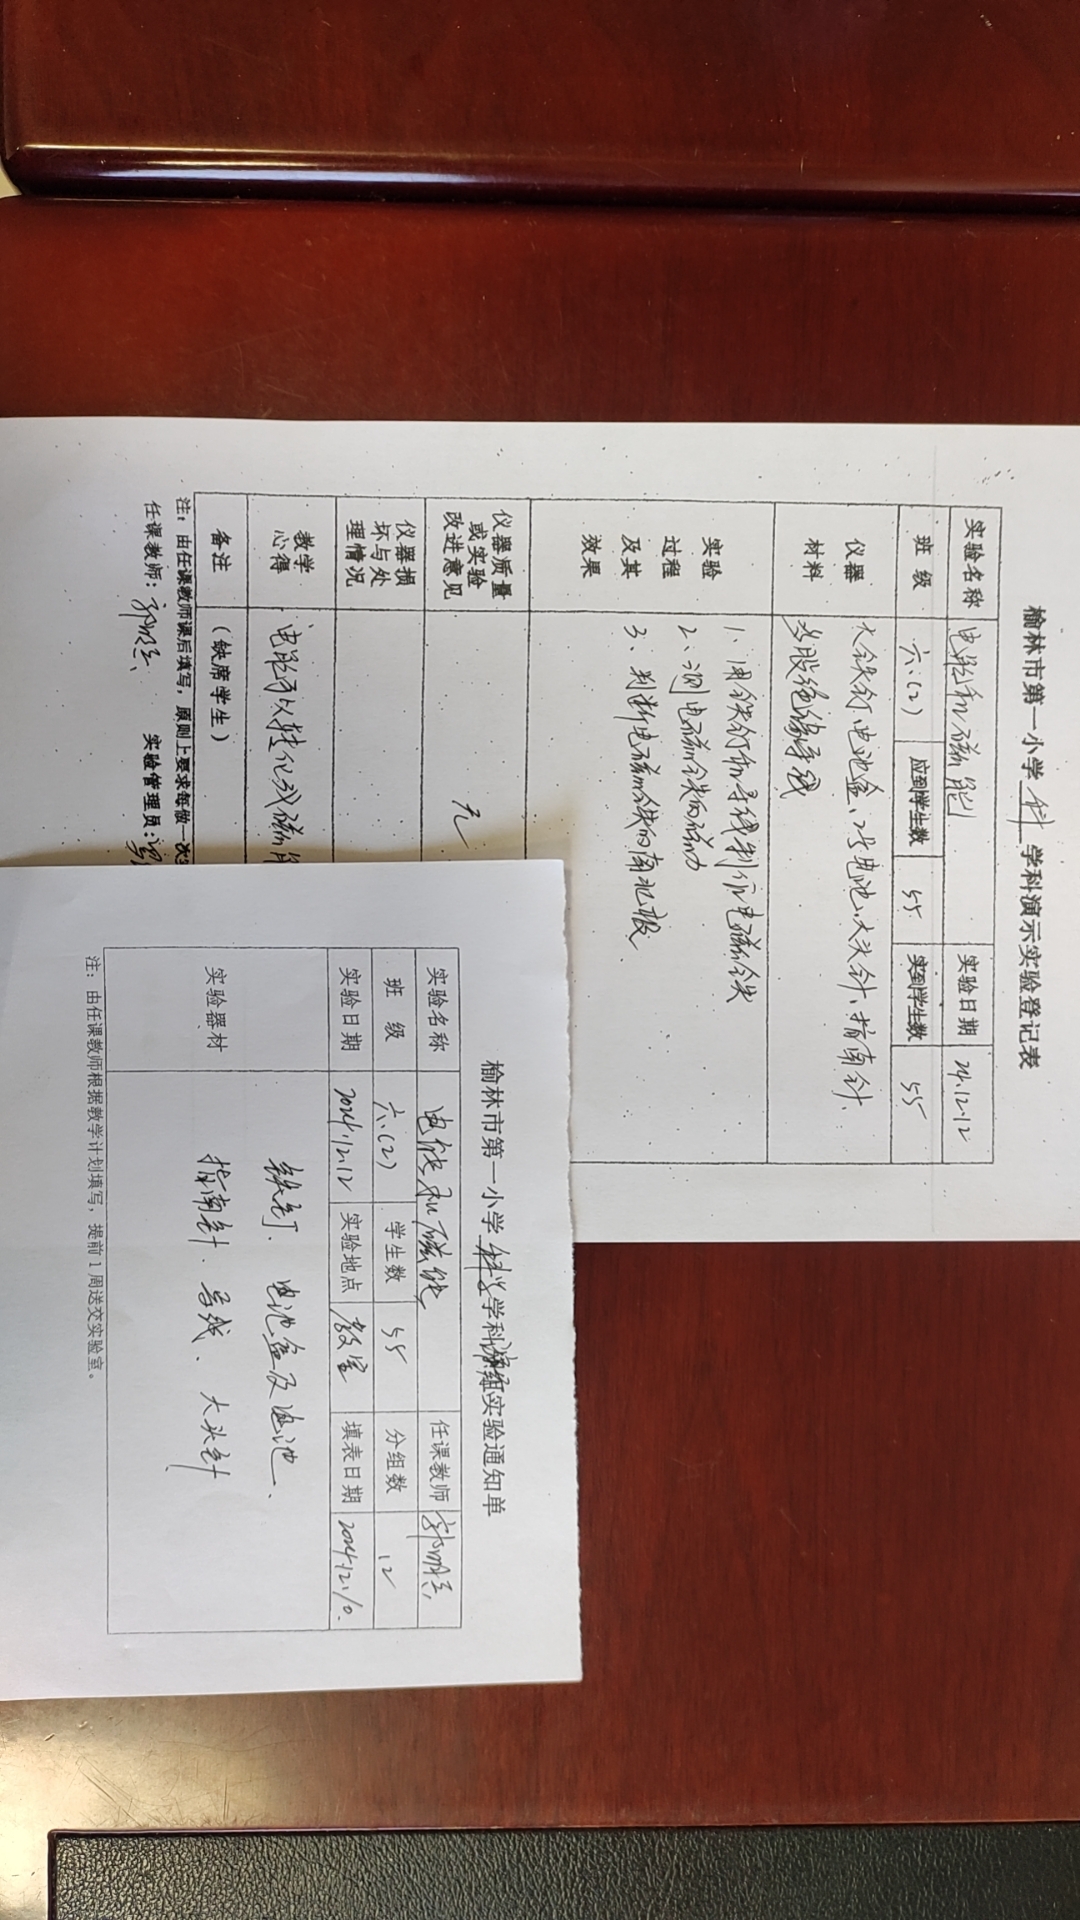 榆林市第一小学 科 学科演示实验登记表
实验名称 电能和磁能 实验日期 24.12.12
班 级 六.(2) 应到学生数 55 实到学生数 55
仪器材料 大铁钉、电池盒、2号电池、大头针、指南针、
多股绝缘导线
实验过程及其效果
1、用铁钉和导线制作电磁铁
2、测电磁铁的磁力
3、判断电磁铁的南北极
仪器质量或实验改进意见 无
仪器损坏与处理情况
教学心得 电能可以转化成磁
备注 (缺席学生)
注：由任课教师课后填写，原则上要求每做一次
任课教师： 实验管理员：
榆林市第一小学 科学 学科 分组实验通知单
实验名称 电能和磁能 任课教师
班 级 六.(2) 学生数 55 分组数 12
实验日期 2024.12.12 实验地点 教室 填表日期 2024.12.10.
实验器材 铁钉、电池盒及电池、
指南针、导线、大头针
注：由任课教师根据教学计划填写，提前1周送交实验室。